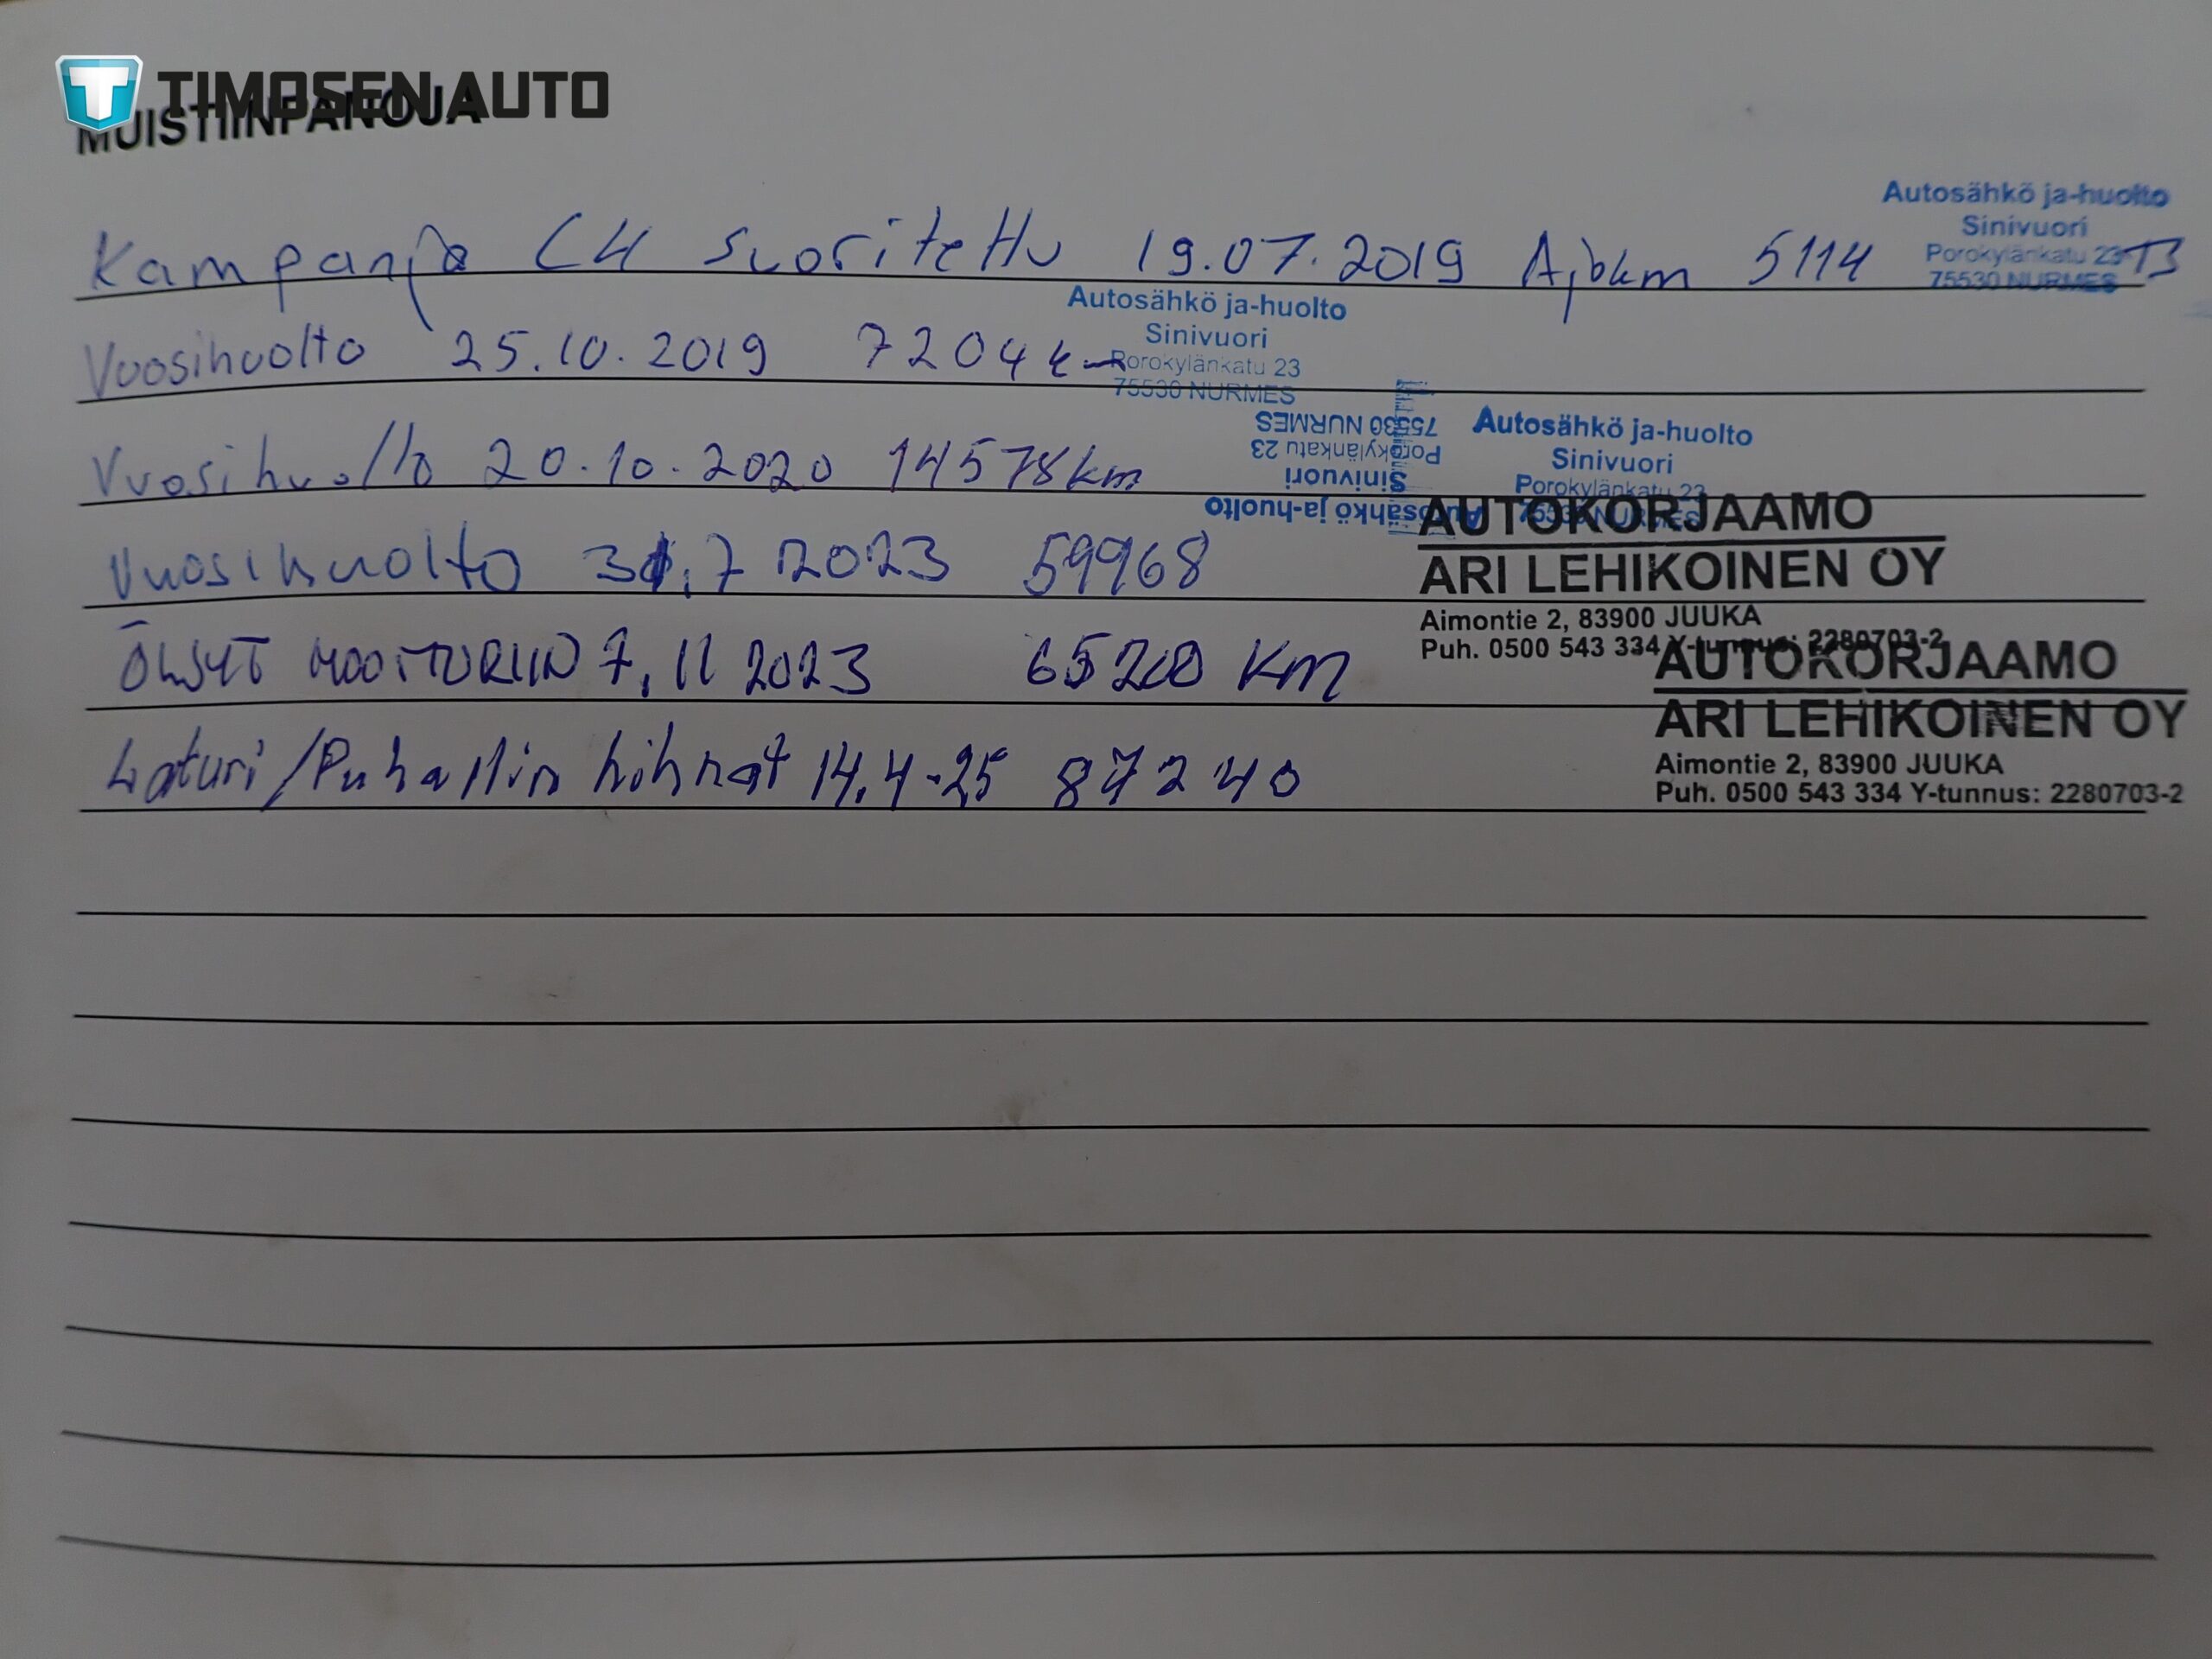 TIMOSEN AUTO
MUISTIINPANOJA
Kampanja C4 suoritettu 19.07.2019 Ajokm 5114
Autosähkö ja-huolto
Sinivuori
Porokylänkatu 23
75530 NURMES
Vuosihuolto 25.10.2019 7204 km
Autosähkö ja-huolto
Sinivuori
Porokylänkatu 23
75530 NURMES
Vuosihuolto 20.10.2020 14578km
Autosähkö ja-huolto
Sinivuori
Porokylänkatu 23
75530 NURMES
Autosähkö ja-huolto
Sinivuori
Porokylänkatu 23
75530 NURMES
Vuosihuolto 31.7 2023 59968
AUTOKORJAAMO
ARI LEHIKOINEN OY
Aimontie 2, 83900 JUUKA
Puh. 0500 543 334 Y-tunnus: 2280703-2
ÖLJYT MOOTTORIIN 7.11 2023 65200 KM
AUTOKORJAAMO
ARI LEHIKOINEN OY
Aimontie 2, 83900 JUUKA
Puh. 0500 543 334 Y-tunnus: 2280703-2
Laturi/Puhallin hihnat 14.4-25 87240